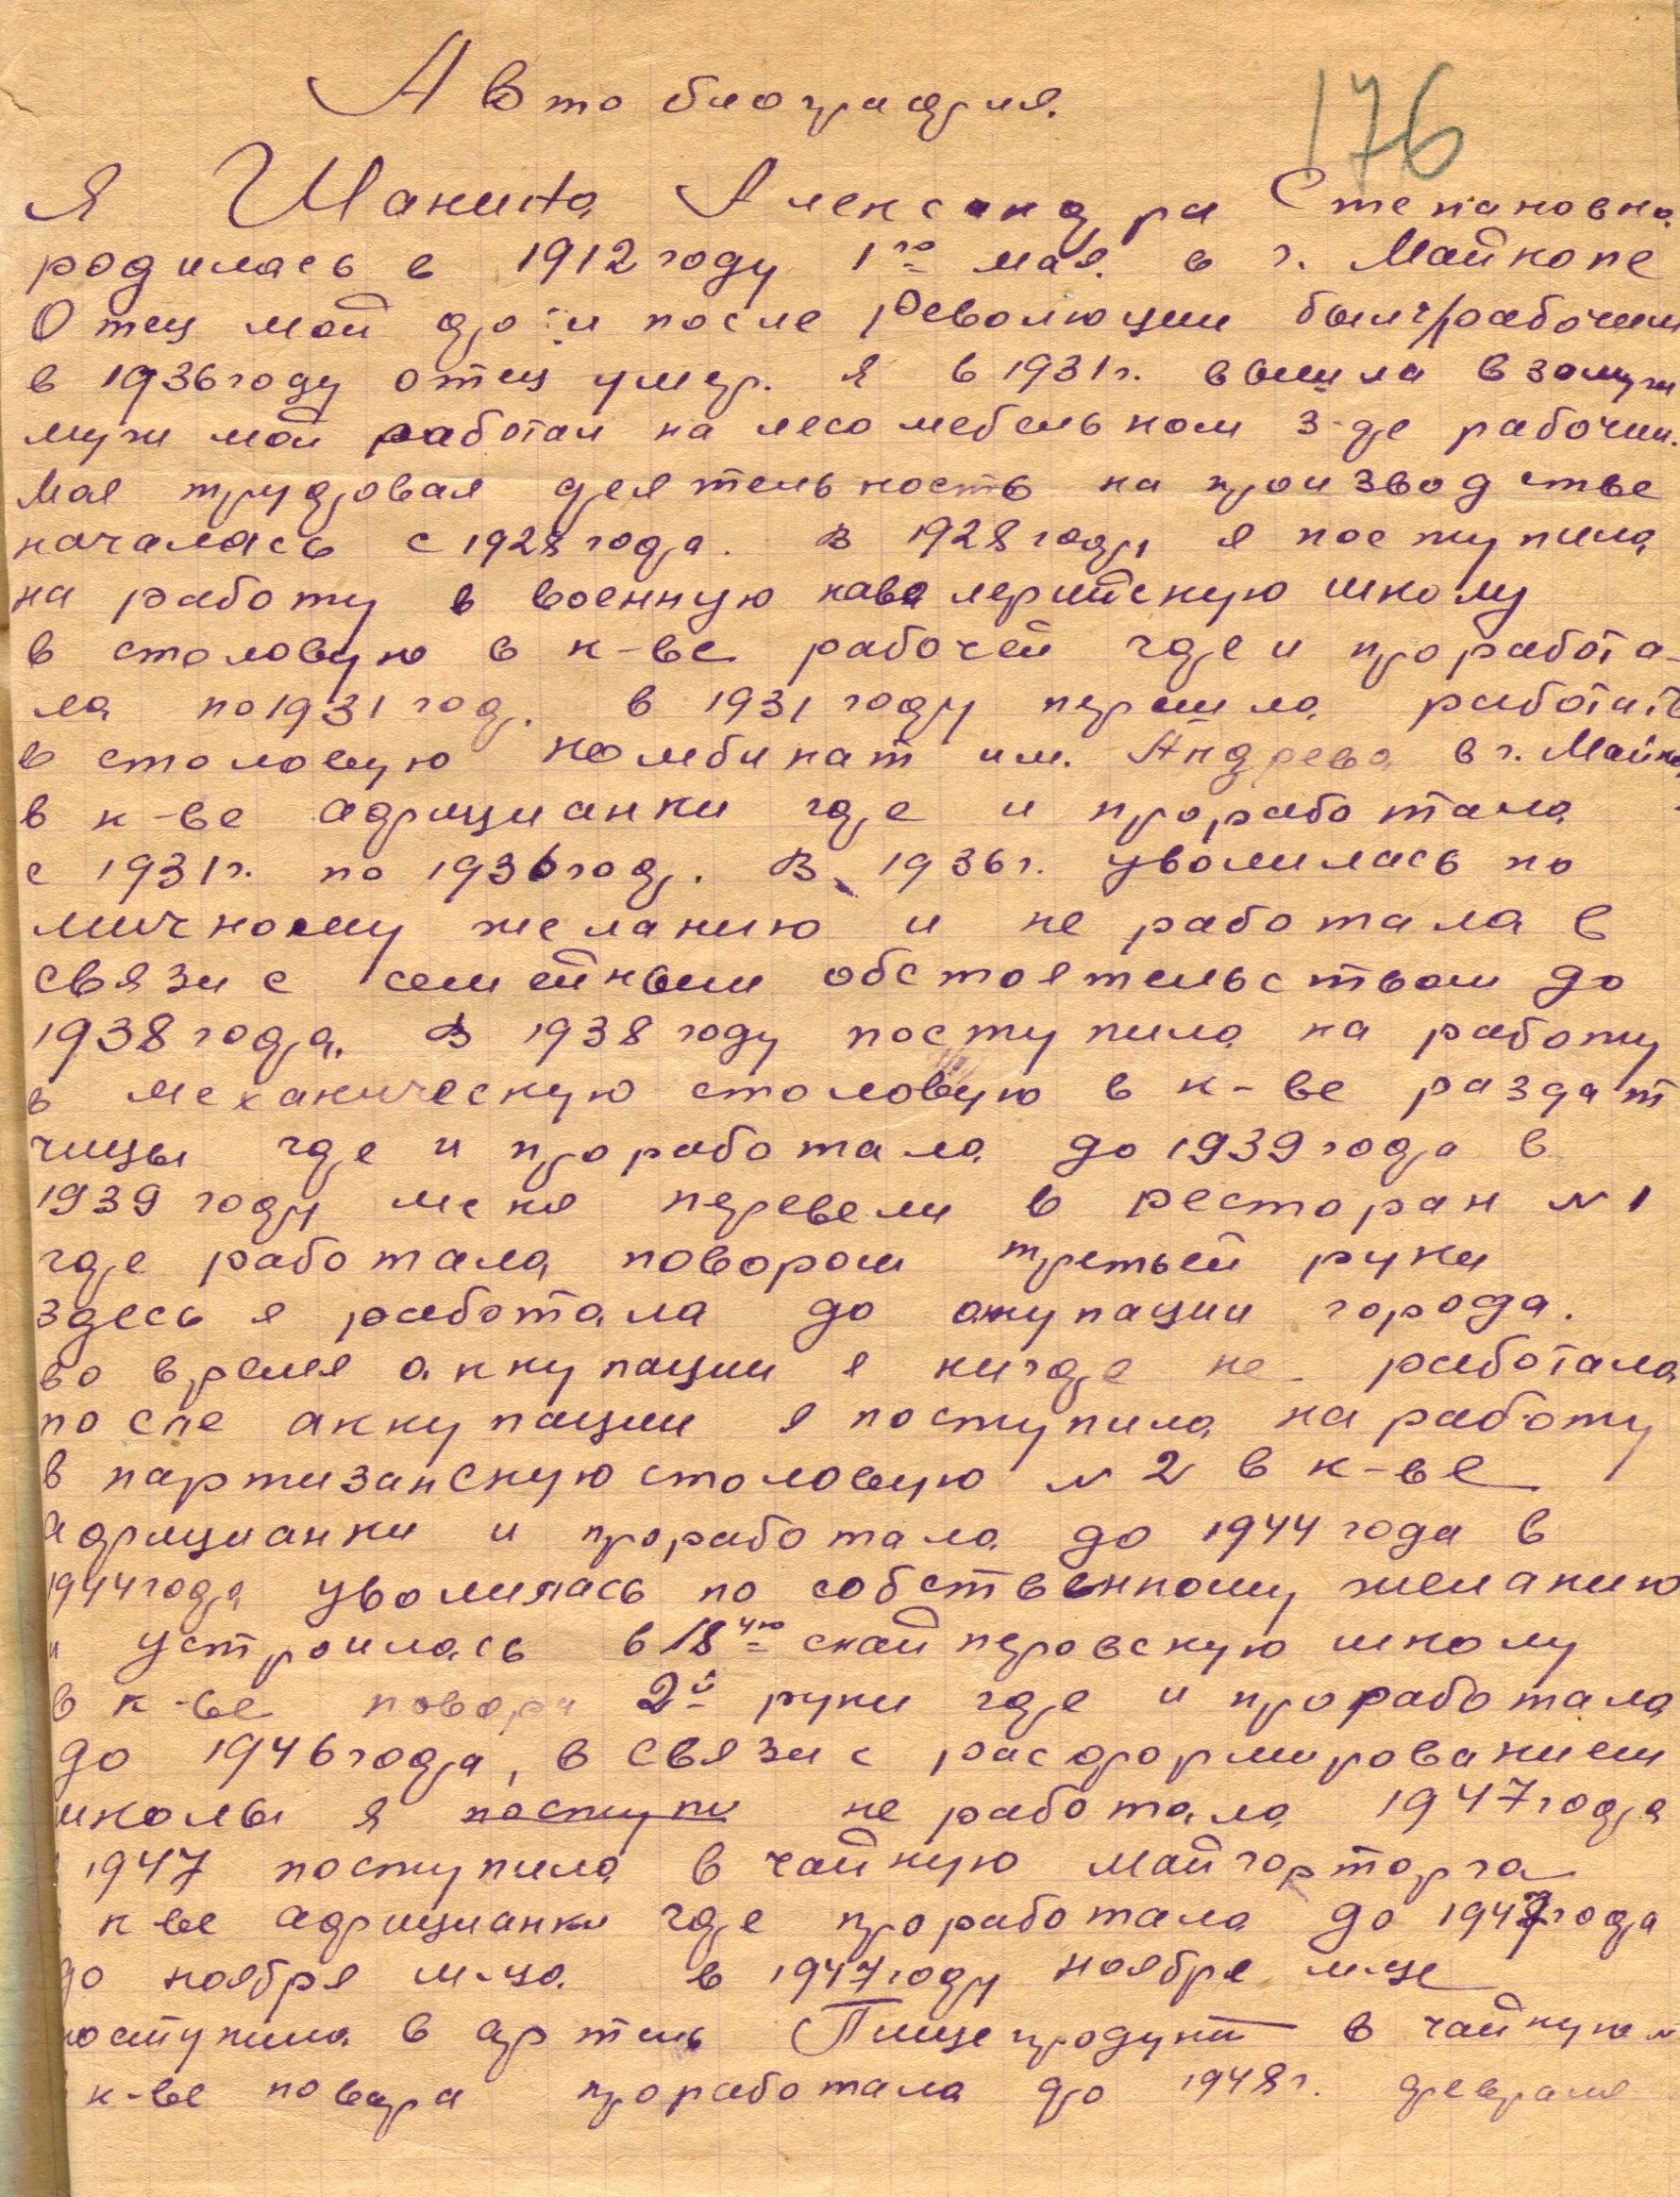 Автобиография.
176
Я Шанина Александра Степановна
родилась в 1912 году 1го мая. в г. Майкопе
Отец мой до и после Революции был ч/рабочим
в 1936 году отец умер. я в 1931 г. вышла взамуж
муж мой работал на лесо мебельном з-де рабочим.
Моя трудовая деятельность на производстве
началась с 1928 года. В 1928 году я поступила
на работу в военную кавалерийскую школу
в столовую в к-ве рабочей где и проработа-
ла по 1931 год. в 1931 году перешла работать
в столовую комбинат им. Андреева в г. Майко
в к-ве афицианки где и проработала
с 1931 г. по 1936 год. В 1936 г. уволилась по
личному желанию и не работала в
связи с семейным обстоятельством до
1938 года. В 1938 году поступила на работу
в механическую столовую в к-ве раздат
чицы где и проработала до 1939 года в
1939 году меня перевели в ресторан № 1
где работала поваром третьей руки
здесь я работала до окупации города.
во время аккупации я нигде не работала
после аккупации я поступила на работу
в партизанскую столовую № 2 в к-ве
афицианки и проработала до 1944 года в
1944 года уволилась по собственному желанию
и устроилась в 18ую снайперовскую школу
в к-ве повара 2й руки где и проработала
до 1946 года, в связи с расформированием
школы я поступи не работала 1947 года
1947 поступила в чайную майгорторга
к-ве афицианки где проработала до 1947 года
до ноября м-ца. в 1947 году ноября м-це
поступила в артель Пищепродукт в чайную №
к-ве повара проработала до 1948 г. февраля